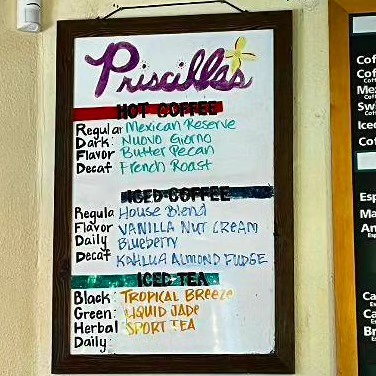 Priscilla's
HOT COFFEE
Regular Mexican Reserve
Dark: Nuovo Giorno
Flavor Butter Pecan
Decaf French Roast
ICED COFFEE
Regula House Blend
Flavor VANILLA NUT CREAM
Daily BLUEBERRY
Decaf KAHLUA ALMOND FUDGE
ICED TEA
Black: TROPICAL BREEZE
Green: LIQUID JADE
Herbal SPORT TEA
Daily:
Cof
Cof
Mex
Sw
Iced
Cof
Esp
Ma
An
Ca
Ca
Br